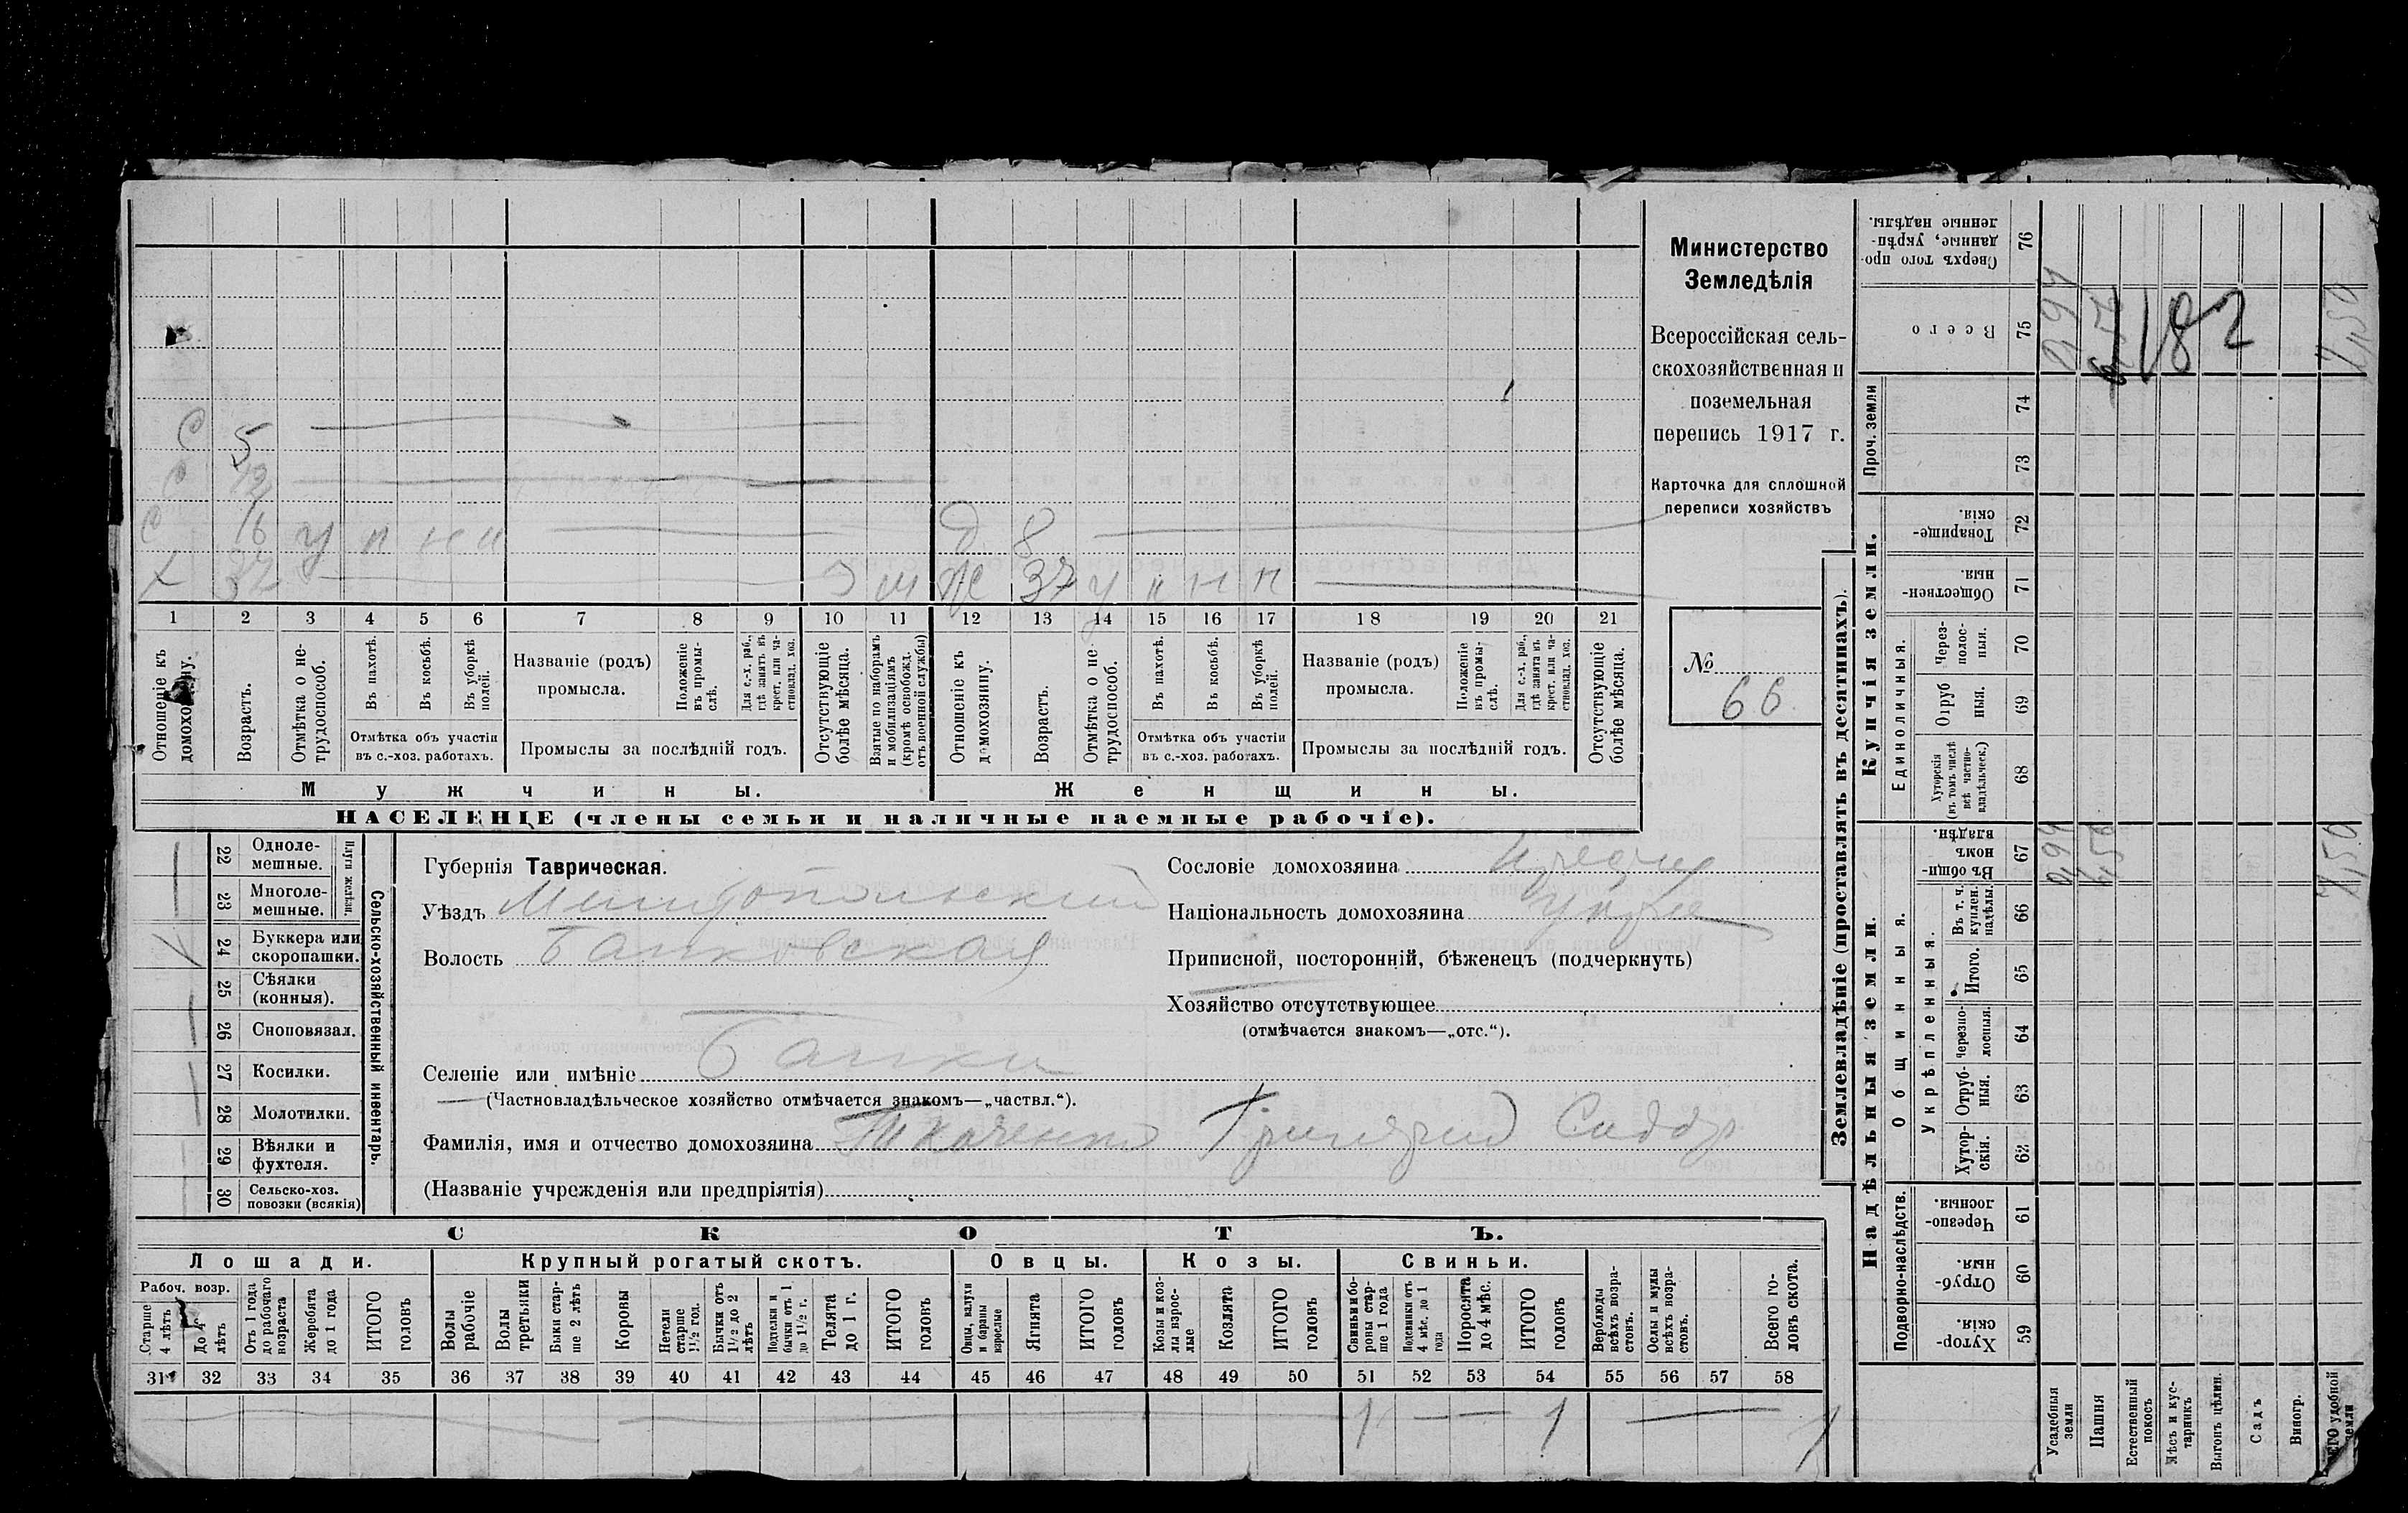 С 5
С 12
С 16 у п н н Д 8
Х 37 Ж 37 у н н н
1 2 3 4 5 6 7 8 9 10 11 12 13 14 15 16 17 18 19 20 21
Отношеніе къ домохозяину.
Возрастъ.
Отмѣтка о нетрудоспособ.
Въ пахотѣ.
Въ косьбѣ.
Въ уборкѣ полей.
Отмѣтка объ участіи
въ с.-хоз. работахъ.
Названіе (родъ)
промысла.
Положеніе въ промыслѣ.
Для с.-х. раб., гдѣ занятъ въ крест. или частновлад. хоз.
Промыслы за послѣдній годъ.
Отсутствующіе болѣе мѣсяца.
Взятые по наборамъ и мобилизаціямъ (кромѣ освобожд. отъ военной службы)
Отношеніе къ домохозяину.
Возрастъ.
Отмѣтка о нетрудоспособ.
Въ пахотѣ.
Въ косьбѣ.
Въ уборкѣ полей.
Отмѣтка объ участіи
въ с.-хоз. работахъ.
Названіе (родъ)
промысла.
Положеніе въ промыслѣ.
Для с.-х. раб., гдѣ занятъ въ крест. или частновлад. хоз.
Промыслы за послѣдній годъ.
Отсутствующіе болѣе мѣсяца.
Мужчины.
Женщины.
НАСЕЛЕНІЕ (члены семьи и наличные наемные рабочіе).
Министерство
Земледѣлія
Всероссійская сель-
скохозяйственная и
поземельная
перепись 1917 г.
Карточка для сплошной
переписи хозяйствъ
№
66
22 Одноле-
мешные.
23 Многоле-
мешные.
Плуги желѣзн.
24 Буккера или
скоропашки.
25 Сѣялки
(конныя).
26 Сноповязал.
27 Косилки.
28 Молотилки.
29 Вѣялки и
фухтеля.
30 Сельско-хоз.
повозки (всякія)
Сельско-хозяйственный инвентарь.
Губернія Таврическая.
Уѣздъ Мелитопольский
Волость Балковская
Селеніе или имѣніе Балки
(Частновладѣльческое хозяйство отмѣчается знакомъ—„частвл.“).
Фамилія, имя и отчество домохозяина Ткаченко Григорий Сидор
(Названіе учрежденія или предпріятія)
Сословіе домохозяина
Національность домохозяина
Приписной, посторонній, бѣженецъ (подчеркнуть)
Хозяйство отсутствующее
(отмѣчается знакомъ—„отс.“).
СКОТЪ.
Лошади. Крупный рогатый скотъ. Овцы. Козы. Свиньи.
Рабоч. возр.
Старше 4 лѣтъ
До 4 лѣтъ
Отъ 1 года до рабочаго возраста
Жеребята до 1 года
ИТОГО головъ
Волы рабочіе
Волы третьяки
Быки старше 2 лѣтъ
Коровы
Нетели старше 1½ год.
Бычки отъ 1½ до 2 лѣтъ
Подтелки и бычки отъ 1 до 1½ г.
Телята до 1 г.
ИТОГО головъ
Овцы, валухи и бараны взрослые
Ягнята
ИТОГО головъ
Козы и козлы взрослые
Козлята
ИТОГО головъ
Свиньи и боровы старше 1 года
Подсвинки отъ 4 мѣс. до 1 года
Поросята до 4 мѣс.
ИТОГО головъ
Верблюды всѣхъ возрастовъ.
Ослы и мулы всѣхъ возрастовъ.
Всего головъ скота.
31 32 33 34 35 36 37 38 39 40 41 42 43 44 45 46 47 48 49 50 51 52 53 54 55 56 57 58
1 1 1
Землевладѣніе (проставлять въ десятинахъ).
Сверхъ того проданные, укрѣпленные надѣлы. 76
Всего 75 0,94 182 7,50
Проч. земли 74 73
Купчія земли.
Товарищескія. 72
Общественныя. 71
Единоличныя.
Черезполосныя. 70
Отрубныя. 69
Хуторскія (въ томъ числѣ всѣ частновладѣльческ.) 68
Надѣльныя земли.
Общинныя.
Въ общинномъ владѣн. 67 0,94 7,50
Въ т. ч. куплен. надѣлы. 66
Укрѣпленныя.
Итого. 65
Черезполосныя. 64
Отрубныя. 63
Хуторскія. 62
Подворно-наслѣдств.
Черезполосныя. 61
Отрубныя. 60
Хуторскія. 59
Усадебныя земли
Пашня
Естественный покосъ
Лѣсъ и кустарникъ
Выгонъ цѣлин.
Садъ
Виногр.
удобной земли